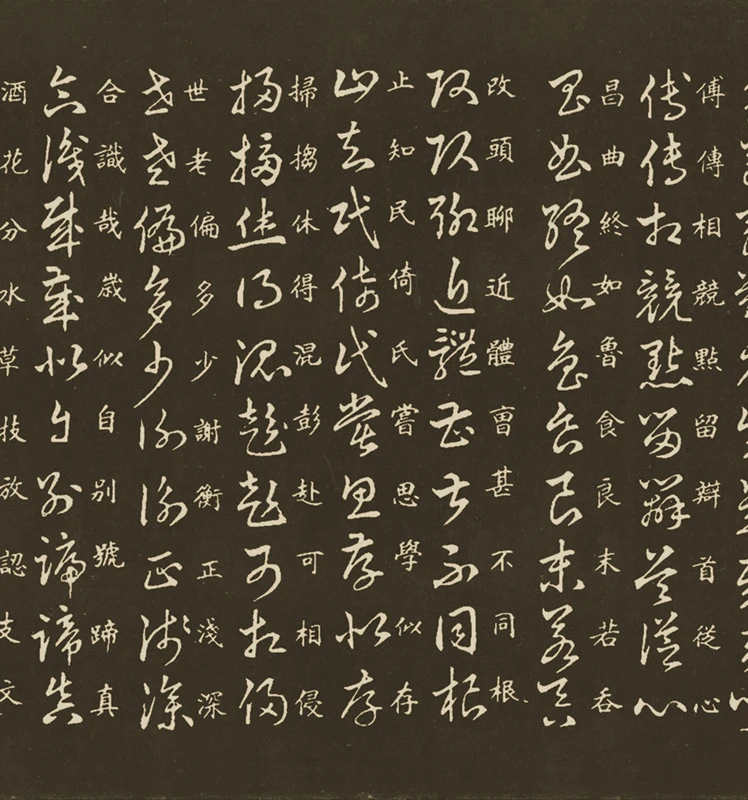 傅傳相競點留辯首從心
昌曲終如魯食良末若吞
改頭聊近體甚不同根
止知民倚氏嘗思學似存
掃搊休得混彭赴可相侵
世老偏多少謝衡正淺深
合識哉歲似自別號蹄真
酒花分水草技放認支文